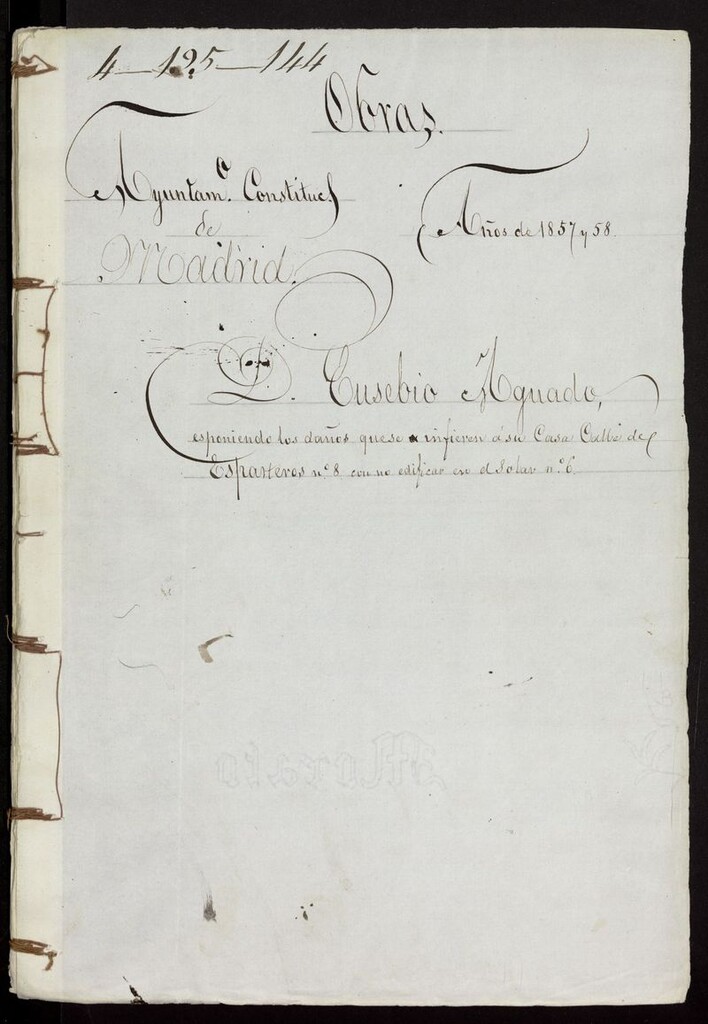 4–125–144
Obras.
Ayuntam.º Constituc.l
de
Madrid.
Años de 1857 y 58.
D. Eusebio Aguado,
esponiendo los daños que se infieren á su Casa Calle de
Esparteros nº 8 con no edificar en el Solar nº 6.
Morato